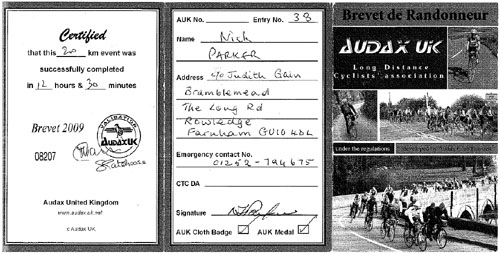 Certified
that this 200 km event was
successfully completed
in 12 hours & 30 minutes
Brevet 2009
VALIDATION
AUDAX UK
08207
Audax United Kingdom
www.audax.uk.net
© Audax UK
AUK No. Entry No. 38
Name Nick
PARKER
Address c/o Judith Gain
Bramblemead
The Long Rd
Rowledge
Farnham GU10 4DL
Emergency contact No.
01252-794675
CTC DA
Signature
AUK Cloth Badge AUK Medal
Brevet de Randonneur
AUDAX UK
Long Distance
Cyclists' association
under the regulations